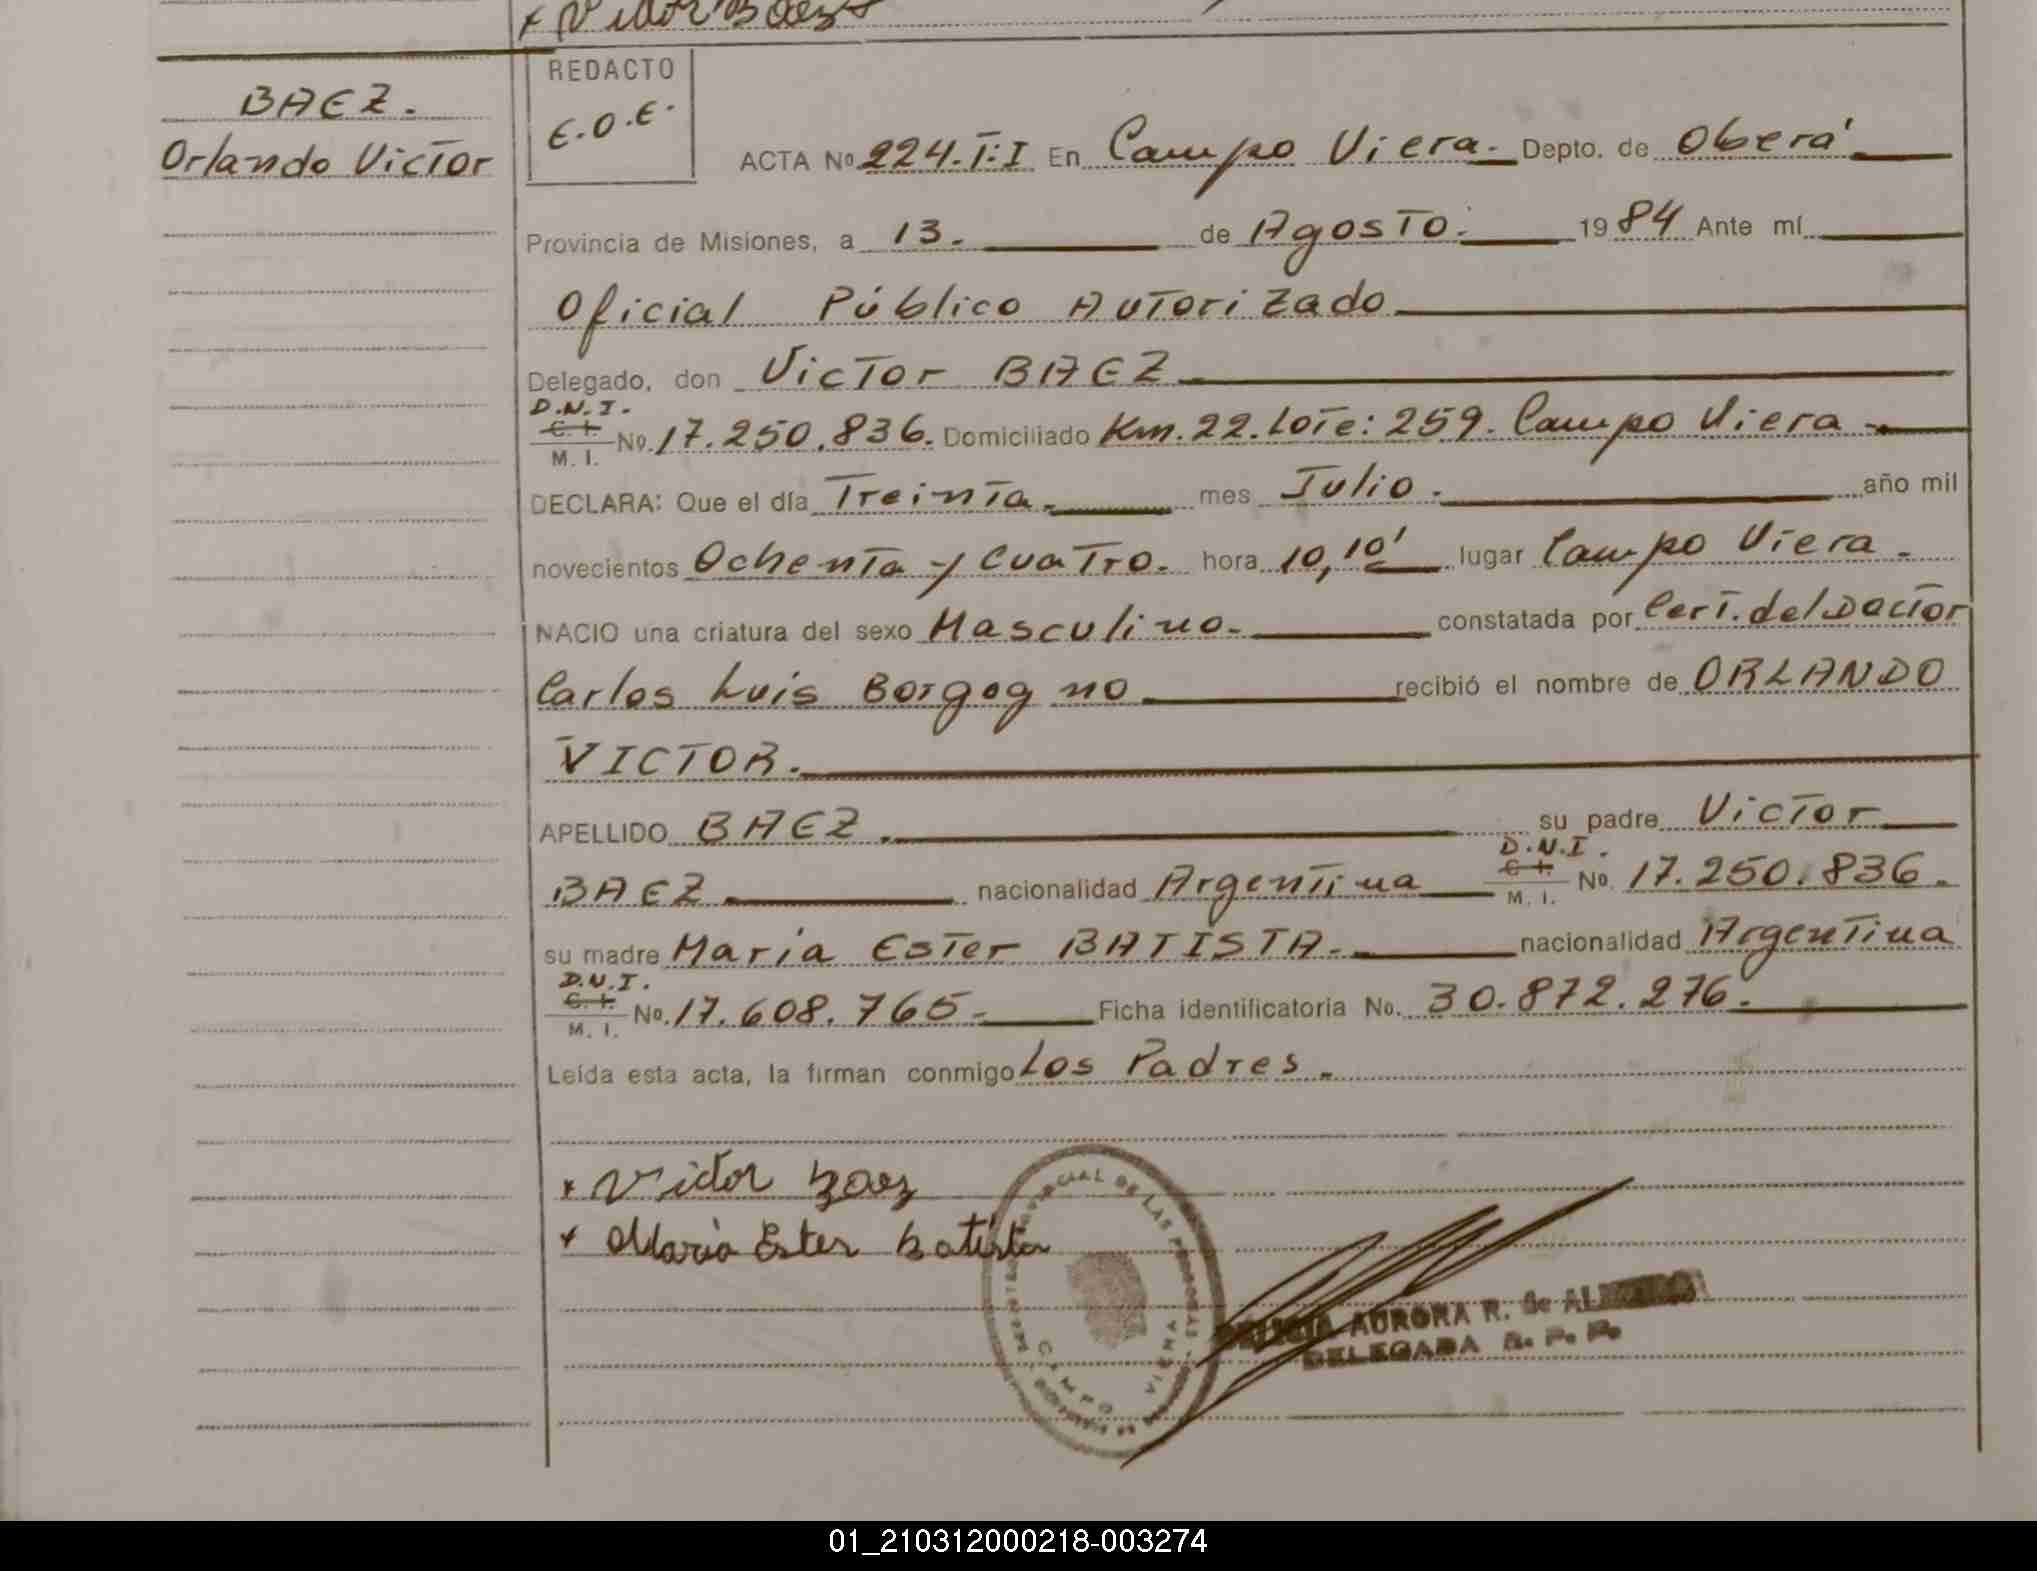 x Victor Baez
BAEZ.
Orlando Victor
REDACTO
E.O.E.
ACTA No 224.T:I En Campo Viera. Depto. de Oberá
Provincia de Misiones, a 13. de Agosto. 1984 Ante mí
Oficial Público Autorizado
Delegado, don Victor BAEZ
D.N.I.
C. I. No. 17.250.836. Domiciliado Km.22.Lote: 259. Campo Viera
M. I.
DECLARA: Que el día Treinta. mes Julio. año mil
novecientos Ochenta y Cuatro. hora 10,10' lugar Campo Viera.
NACIO una criatura del sexo Masculino. constatada por Cert. del Doctor
Carlos Luis Borgogno recibió el nombre de ORLANDO
VICTOR.
APELLIDO BAEZ. su padre Victor
D.N.I.
BAEZ nacionalidad Argentina C. I. No. 17.250.836.
M. I.
su madre Maria Ester BATISTA. nacionalidad Argentina
D.N.I.
C. I. No. 17.608.765. Ficha identificatoria No. 30.872.276.
M. I.
Leída esta acta, la firman conmigo Los Padres.
x Victor Baez
x Maria Ester Batista
PROVINCIAL DE LAS PERSONAS
CAMPO VIERA
AURORA R. de
DELEGADA R. P. P.
01_210312000218-003274